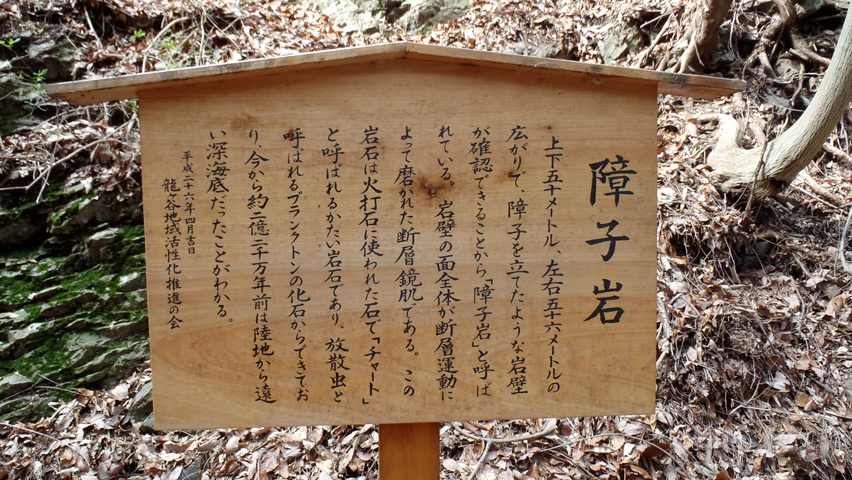 障子岩
上下五十メートル、左右五十六メートルの
広がりで、障子を立てたような岩壁
が確認できることから、「障子岩」と呼ば
れている。岩壁の面全体が断層運動に
よって磨かれた断層鏡肌である。この
岩石は火打石に使われた石で「チャート」
と呼ばれるかたい岩石であり、放散虫と
呼ばれるプランクトンの化石からできてお
り、今から約二億二千万年前は陸地から遠
い深海底だったことがわかる。
平成二十六年四月吉日
龍ヶ谷地域活性化推進の会